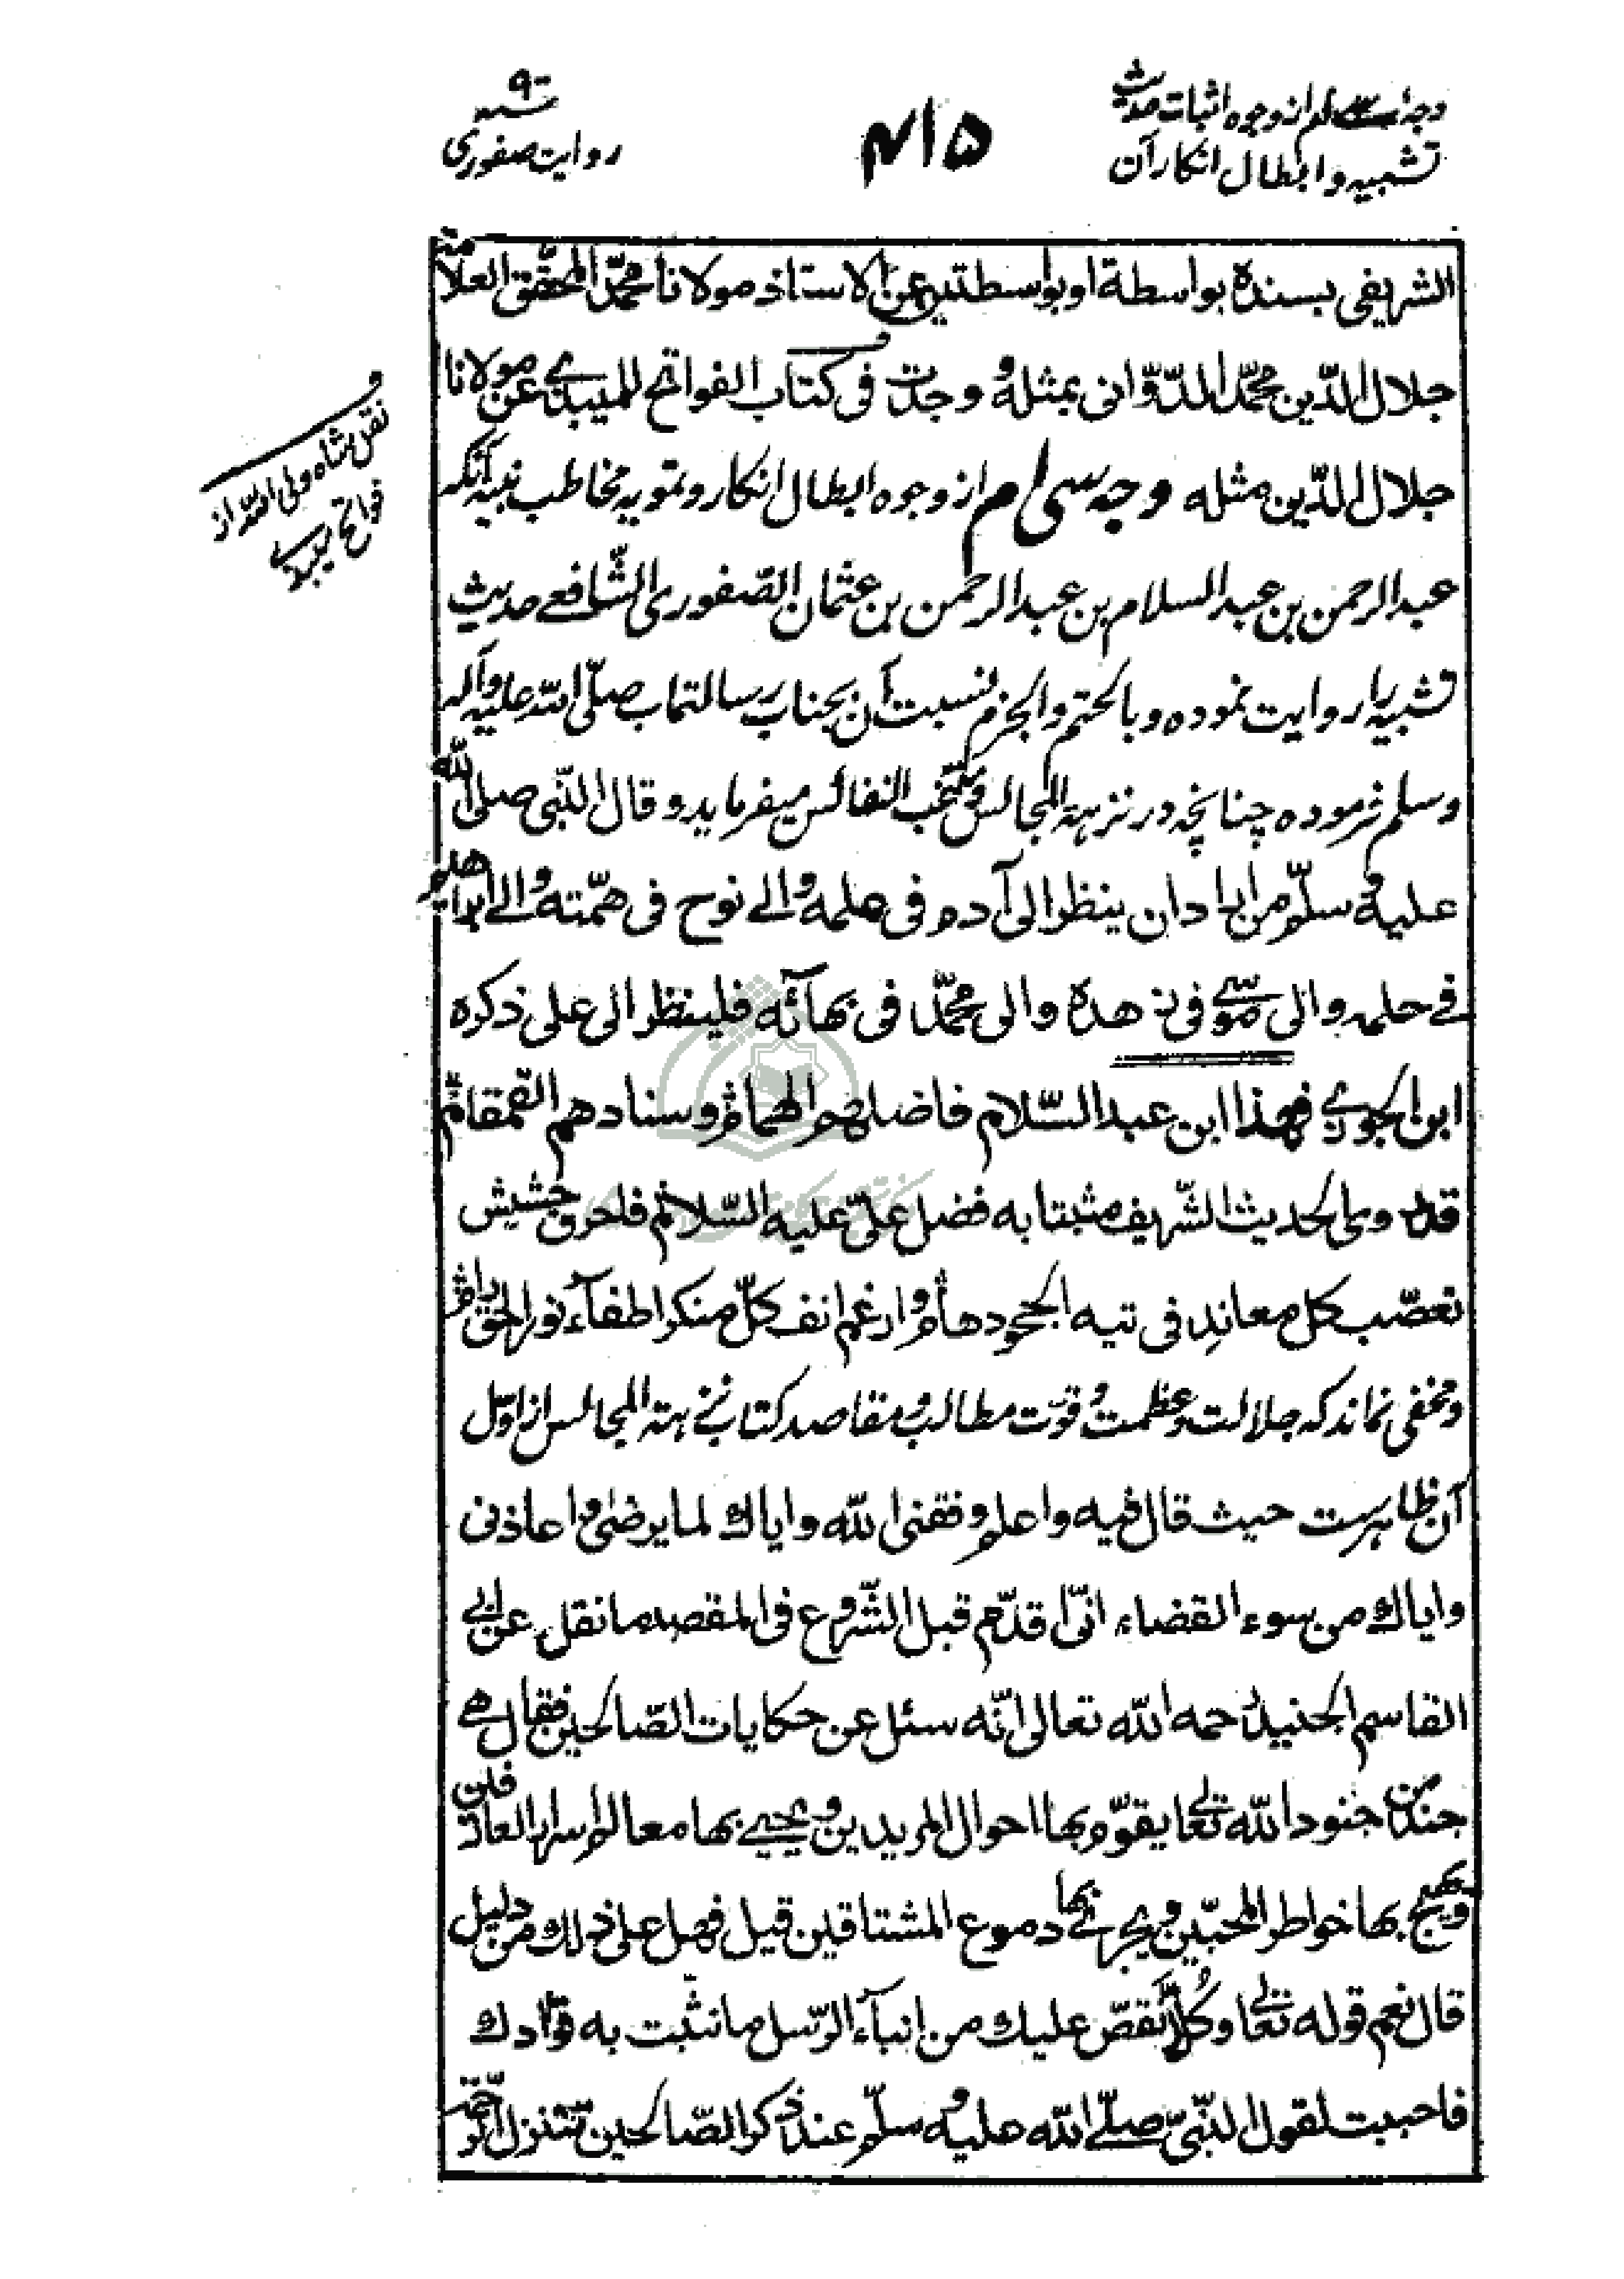 وجه سی ام از وجوه اثبات حدیث
تشبیه و ابطال انکار آن
۴۱۵
روایت صفوری
الشریفی بسنده بواسطة او بواسطتین عن الاستاذ مولانا محمّد المحقّق العلامة
جلال الدّین محمّد الدّوّانی بمثله و وجدت فی کتاب الفواتح للمیبدی عن مولانا
جلال الدّین مثله وجه سی ام از وجوه ابطال انکار و تمویه مخاطب نبیه آنکه
عبد الرحمن بن عبد السلام بن عبد الرحمن بن عثمان الصّفوری الشّافعے حدیث
تشبیه را روایت نموده و بالحتم والجزم نسبت آن بجناب رسالتماب صلّی اللّه علیه وآله
وسلم فرموده چنانچه در نزهة المجالس ومنتخب النفائس میفرماید و قال النّبی صلی الله
علیه و سلّم من اراد ان ینظر الی آدم فی علمه و الے نوح فی همّته و الے ابراهیم
فے حلمه والی موسی فی زهده والی محمّد فی بهآئه فلینظر الی علی ذکره
ابن الجوزی فهذا ابن عبد السّلام فاضلهم الهمام و سنادهم القمقام
قد روی الحدیث الشّریف مثبتا به فضل علیّ علیه السّلام فاحرق حشیش
تعصّب کل معاند فی تیه الجحود هام و ارغم انف کلّ منکر اطفآء نور الحق رام
و مخفی نماند که جلالت و عظمت و قوّت مطالب و مقاصد کتاب نزهة المجالس از اوّل
آن ظاهرست حیث قال فیه واعلم وفقنی اللّه وایاك لما یرضی و اعاذنی
وایاك من سوء القضاء انّی اقدّم قبل الشّروع فی المقصد ما نقل عن ابی
القاسم الجنید رحمه اللّه تعالی انّه سئل عن حکایات الصّالحین فقال هے
جند من جنود اللّه تعالی یقوّم بها احوال المریدین و یحیی بها معالم اسرار العارفین
ویهیج بها خواطر المحبّین و یجری بها دموع المشتاقین قیل فهل علی ذلك من دلیل
قال نعم قوله تعالی و کُلاًّ نقصّ علیك من انبآء الرّسل ما نثبّت به فؤادك
فاحببت لقول النّبیّ صلّی اللّه علیه و سلّم عند ذکر الصّالحین تتنزل الرّحمة
نقل شاه ولی اللّه از
فواتح میبدی